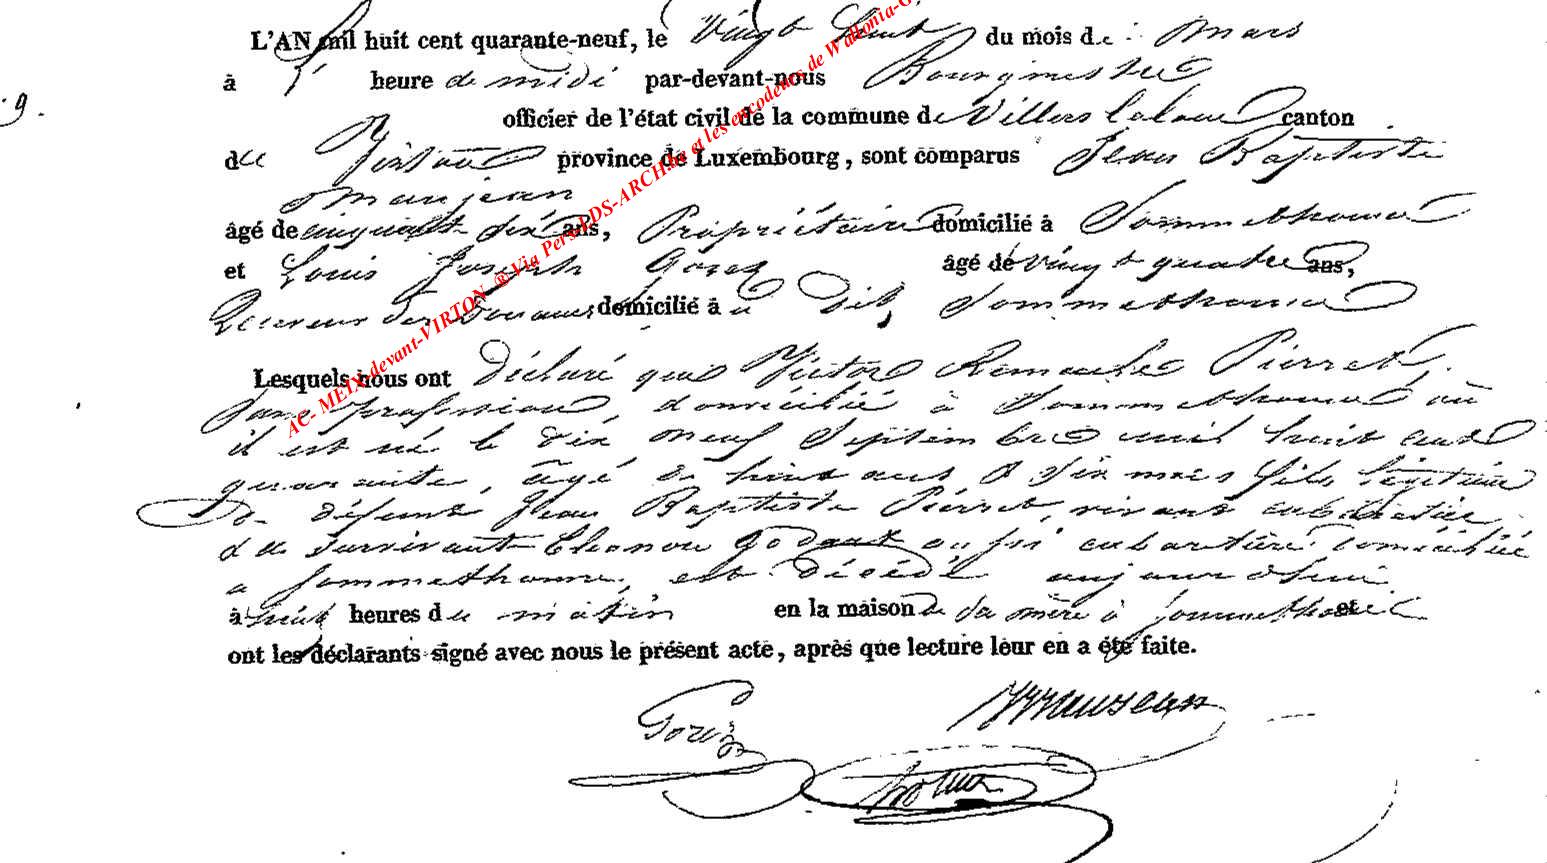 L'AN mil huit cent quarante-neuf, le Vingt huit du mois de Mars
à 1 heure de midi par-devant-nous Bourgmestre
9.
officier de l'état civil de la commune de Villers la loue canton
de Virton province de Luxembourg, sont comparus Jean Baptiste
Manjean
âgé de cinquante dix ans, Propriétaire domicilié à Sommethonne
et Louis Joseph âgé de vingt quatre ans,
Receveur des Douanes domicilié à a dit Sommethonne
Lesquels nous ont déclaré que Victor Romanche Pierret,
sans profession, domicilié à Sommethonne où
il est né le dix neuf Septembre mil huit cent
quarante, âgé de huit ans & six mois fils légitime
De défunt Jean Baptiste Pierret, vivant cabaretier
& de survivante Eleonore Godaux aussi cabartière domiciliée
a Sommethonne, est décédé aujourd'hui
à huit heures du matin en la maison de sa mère à Sommethonne et
ont les déclarants signé avec nous le présent acte, après que lecture leur en a été faite.
Manjean
AC- MEIX-devant-VIRTON @ Via Perso LDS-ARCH.be et les encodeurs de Wallonia-G